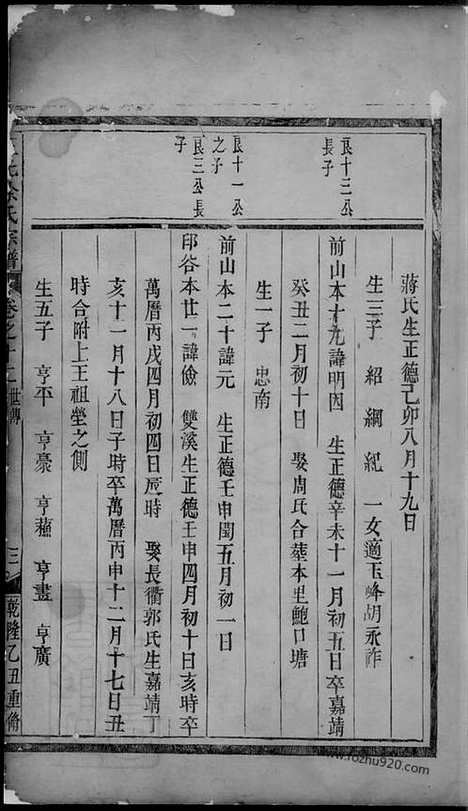 蔣氏生正德己卯八月十九日
生三子 紹綱紀 一女適玉峰胡永祚
良十三公長子
前山本十九諱明因 生正德辛未十一月初五日卒嘉靖
癸丑二月初十日 娶周氏合塟本里鮑口塘
生一子 忠南
良十一公之子
前山本二十諱元 生正德壬申閏五月初一日
良三公長子
印谷本廿一諱儉 雙溪生正德壬申四月初十日亥時卒
萬曆丙戌四月初四日辰時 娶長衢郭氏生嘉靖丁
亥十一月十八日子時卒萬曆丙申十二月十七日丑
時合附上王祖塋之側
生五子 亨平 亨豪 亨蘊 亨畫 亨廣
氏宗譜 卷之十二 世傳 三 乾隆乙丑重脩
www.rozhu920.com